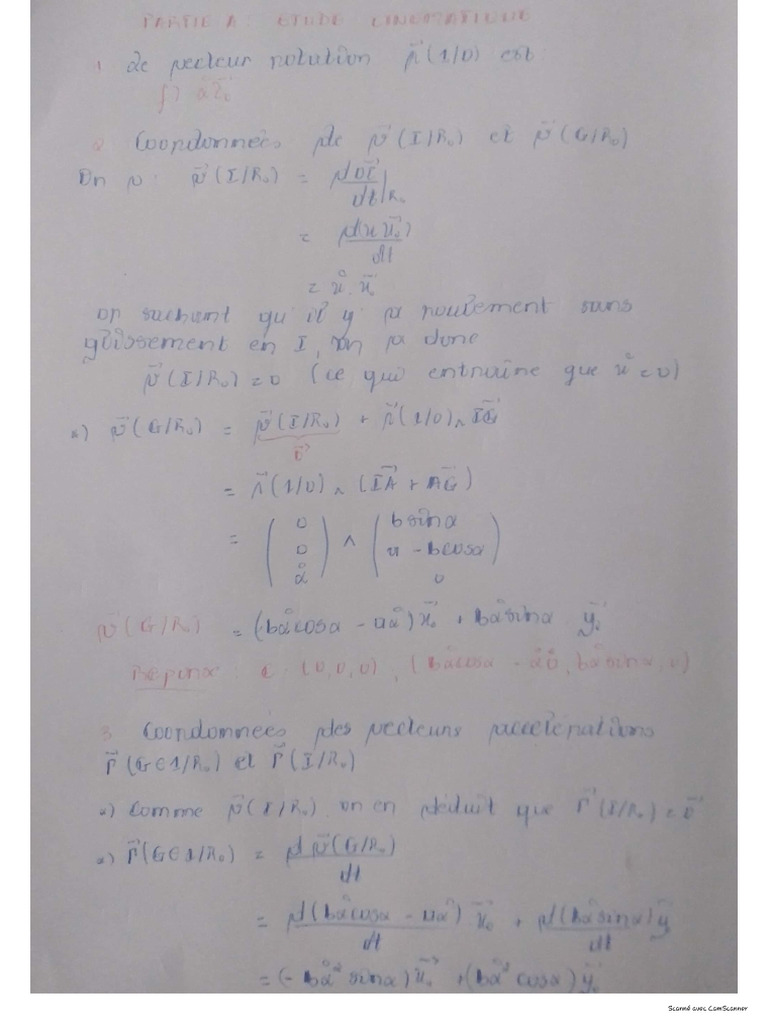 PARTIE A : ETUDE CINEMATIQUE
1. Le vecteur rotation Ω⃗(1/0) est
f) α̊z⃗₀
2 Coordonnées de v⃗(I/R₀) et v⃗(G/R₀)
On a : v⃗(I/R₀) = dOI⃗/dt|R₀
= d(x x⃗₀)/dt
= x̊ . x⃗₀
or sachant qu'il y a roulement sans
glissement en I, on a donc
v⃗(I/R₀) = 0 (ce qui entraîne que x̊ = 0)
*) v⃗(G/R₀) = v⃗(I/R₀) + Ω⃗(1/0) ∧ IG⃗
0⃗
= Ω⃗(1/0) ∧ (IA⃗ + AG⃗)
= (0 0 α̊) ∧ (b sinα a - bcosα 0)
v⃗(G/R₀) = (bα̊cosα - aα̊)x⃗₀ + bα̊sinα y⃗₀
Reponse : c (0,0,0) , (bα̊cosα - α̊a, bα̊sinα, 0)
3 Coordonnées des vecteurs accélérations
Γ⃗(G∈1/R₀) et Γ⃗(I/R₀)
*) Comme v⃗(I/R₀) on en déduit que Γ⃗(I/R₀) = 0⃗
*) Γ⃗(G∈1/R₀) = d v⃗(G/R₀)/dt
= d(bα̊cosα - aα̊)/dt x⃗₀ + d(bα̊sinα)/dt y⃗
= (-bα̊² sinα)x⃗₀ + (bα̊² cosα)y⃗₀
Scanné avec CamScanner